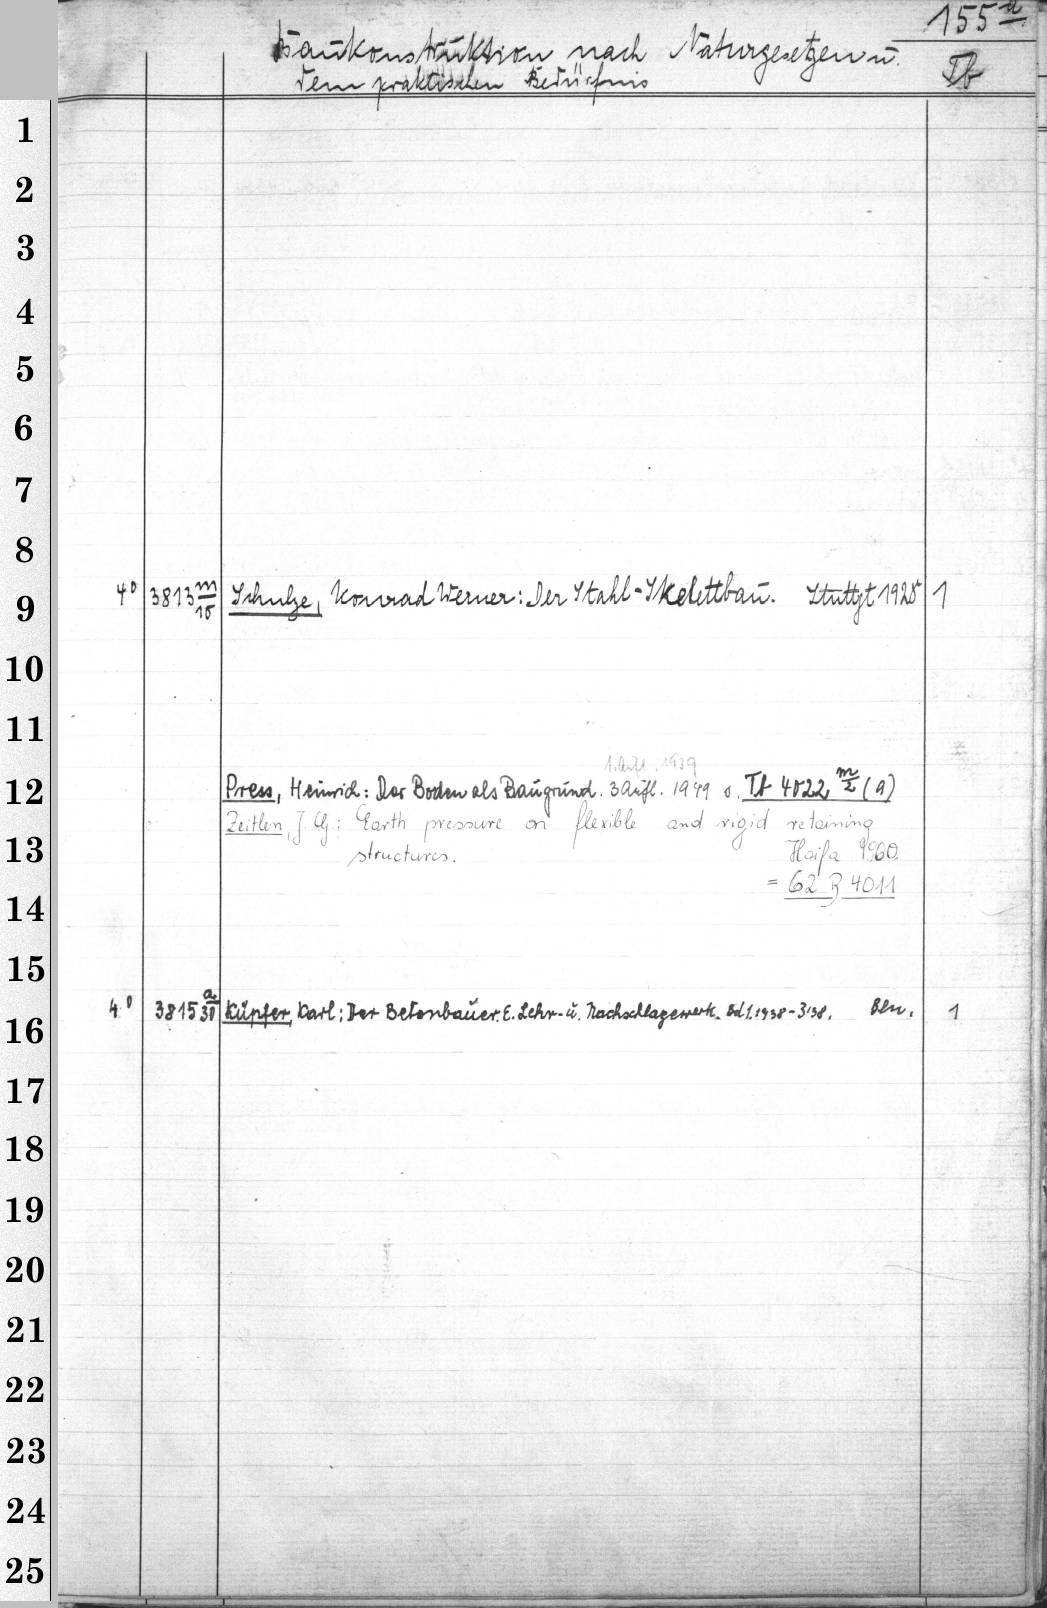 155 a
Baukonstruktion nach Naturgesetzen u.
dem praktischen Bedürfnis
Tb
1
2
3
4
5
6
7
8
9
4° 3813 m/15 Schulze, Konrad Werner: Der Stahl-Skelettbau. Stuttgt 1928 1
10
11
1. Aufl. 1939
12
Press, Heinrich: Der Boden als Baugrund. 3 Aufl. 1949 s. Tb 4022 m/2 (a)
Zeitlen, J. G.: Earth pressure on flexible and rigid retaining
13
structures. Haifa 1960.
= 62 B 4011
14
15
4° 3815 a/30 Küpfer, Karl: Der Betonbauer. E. Lehr- u. Nachschlagewerk. Bd 1. 1938 - 3 '38. Bln. 1
16
17
18
19
20
21
22
23
24
25